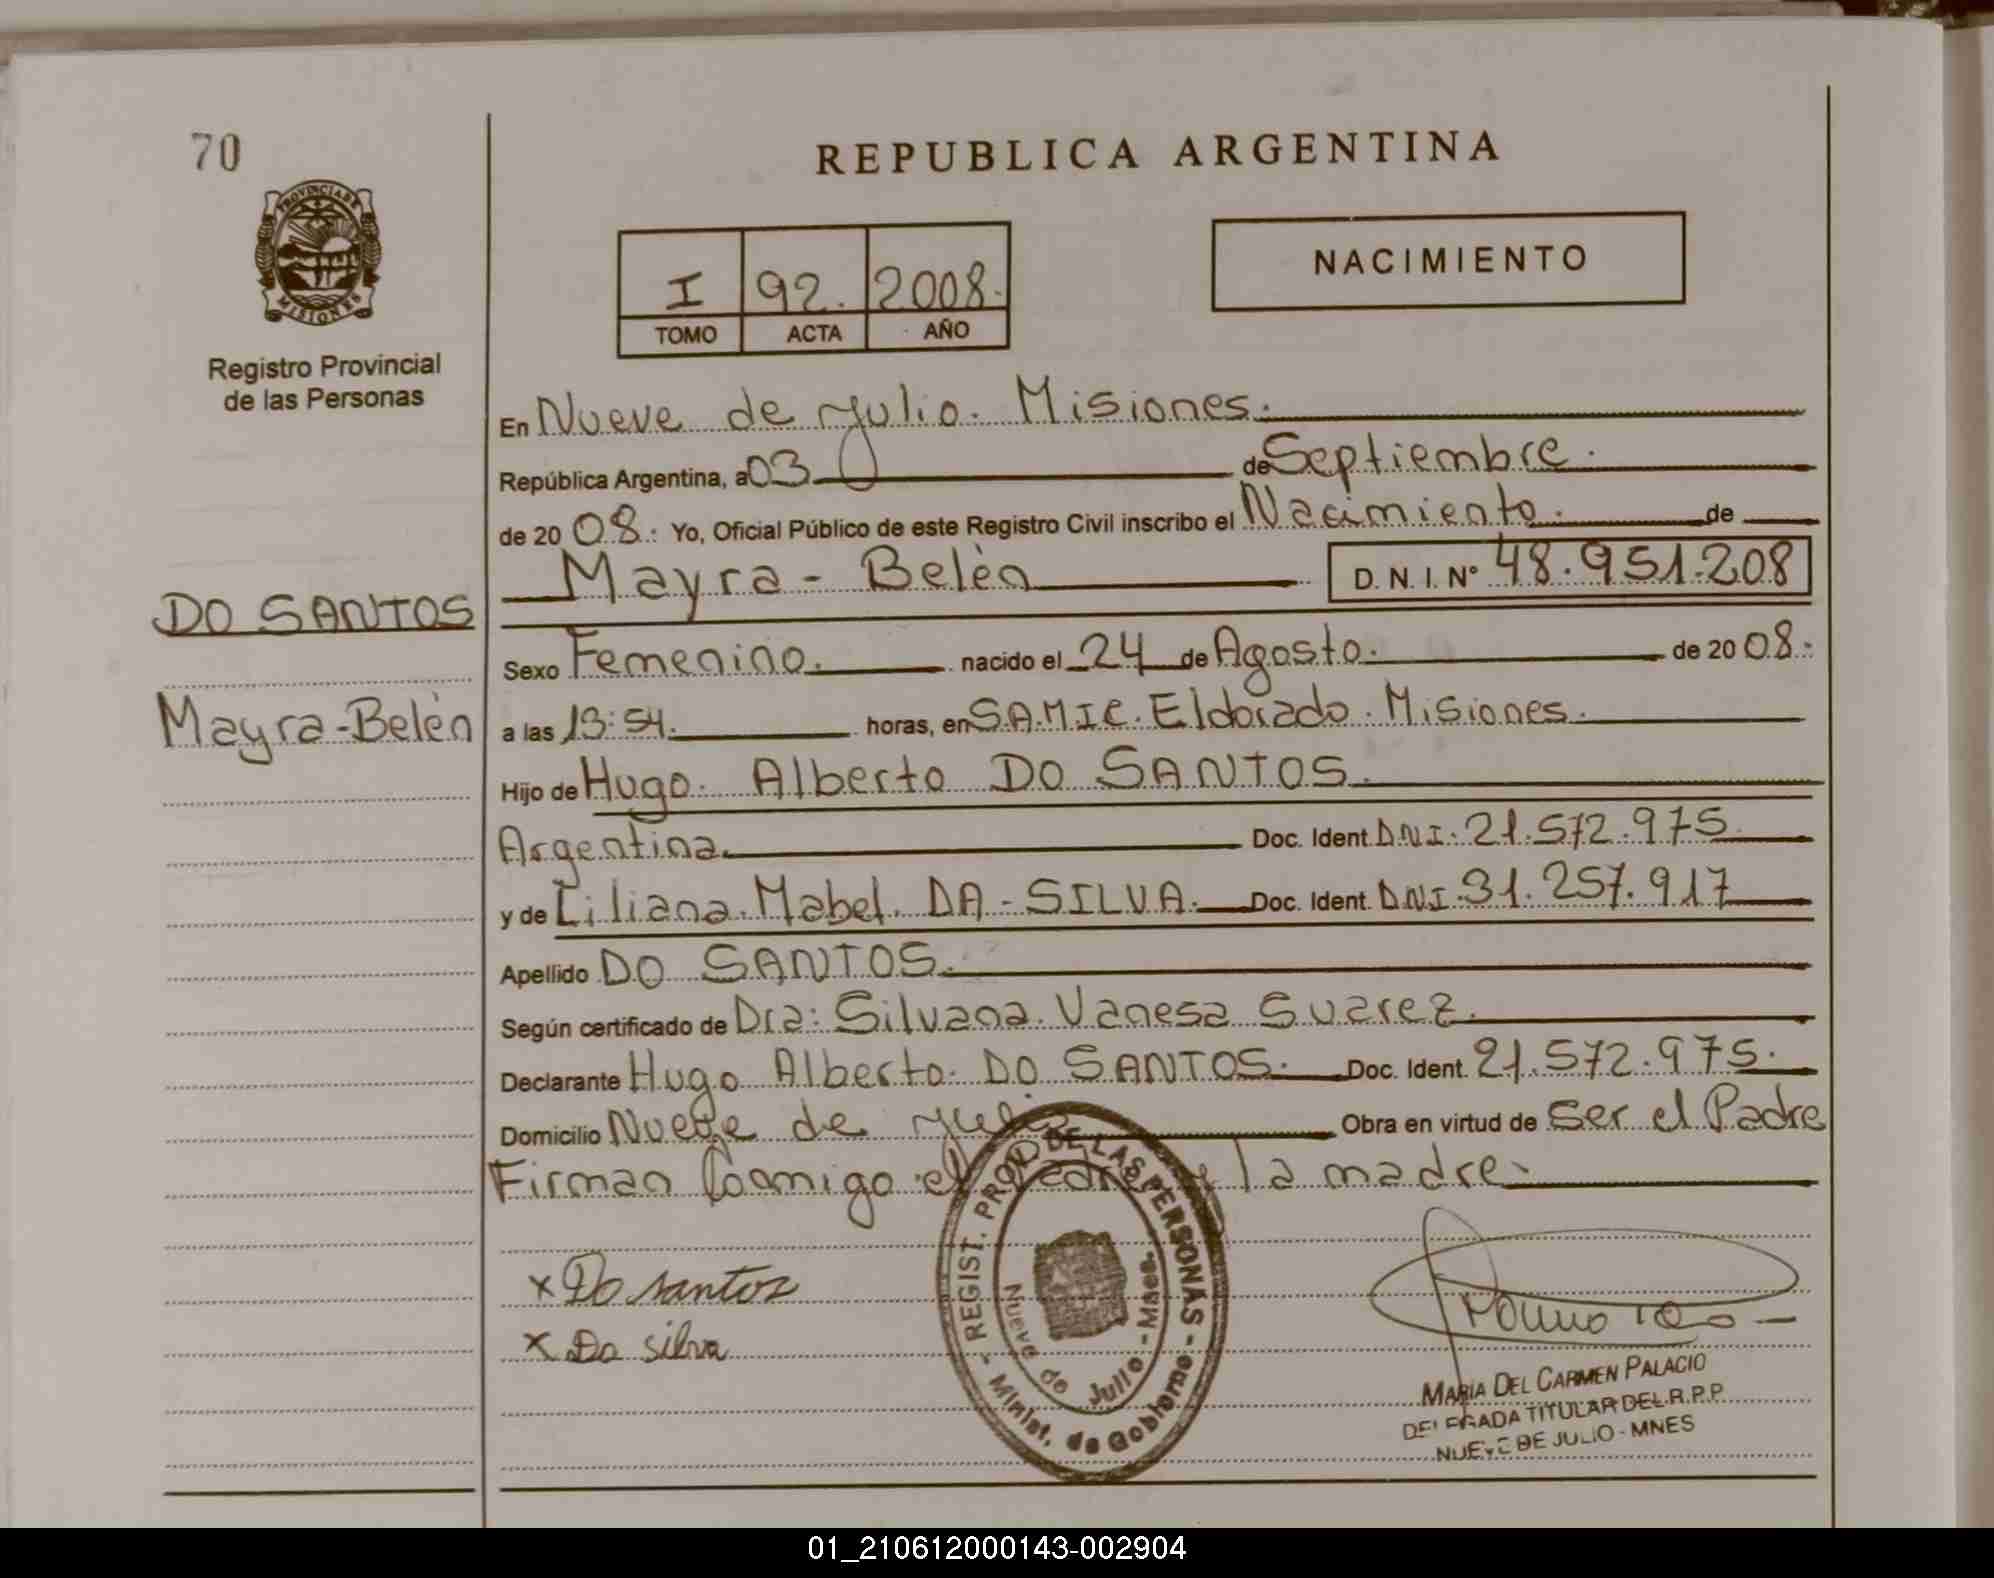 70
REPUBLICA ARGENTINA
PROVINCIA DE
MISIONES
Registro Provincial
de las Personas
I 92. 2008.
TOMO ACTA AÑO
NACIMIENTO
En Nueve de Julio. Misiones.
República Argentina, a 03 de Septiembre.
de 20 08. Yo, Oficial Público de este Registro Civil inscribo el Nacimiento. de
Mayra - Belén D. N. I. Nº 48.951.208
DO SANTOS
Mayra-Belén
Sexo Femenino. nacido el 24 de Agosto. de 20 08.
a las 13:54. horas, en S.A.M.I.C. Eldorado. Misiones.
Hijo de Hugo. Alberto DO SANTOS.
Argentina. Doc. Ident. D.N.I. 21.572.975
y de Liliana. Mabel. DA - SILVA. Doc. Ident. D.N.I. 31.257.917
Apellido DO SANTOS.
Según certificado de Dra: Silvana. Vanesa Suarez.
Declarante Hugo Alberto. DO SANTOS. Doc. Ident. 21.572.975.
Domicilio Nueve de Julio Obra en virtud de Ser el Padre
Firman Conmigo el Padre y la madre.
x Do santos
x Da silva
REGIST. PROV. DE LAS PERSONAS
Nueve de Julio - Mnes.
Minist. de Gobierno
MARIA DEL CARMEN PALACIO
DELEGADA TITULAR DEL R.P.P.
NUEVE DE JULIO - MNES
01_210612000143-002904